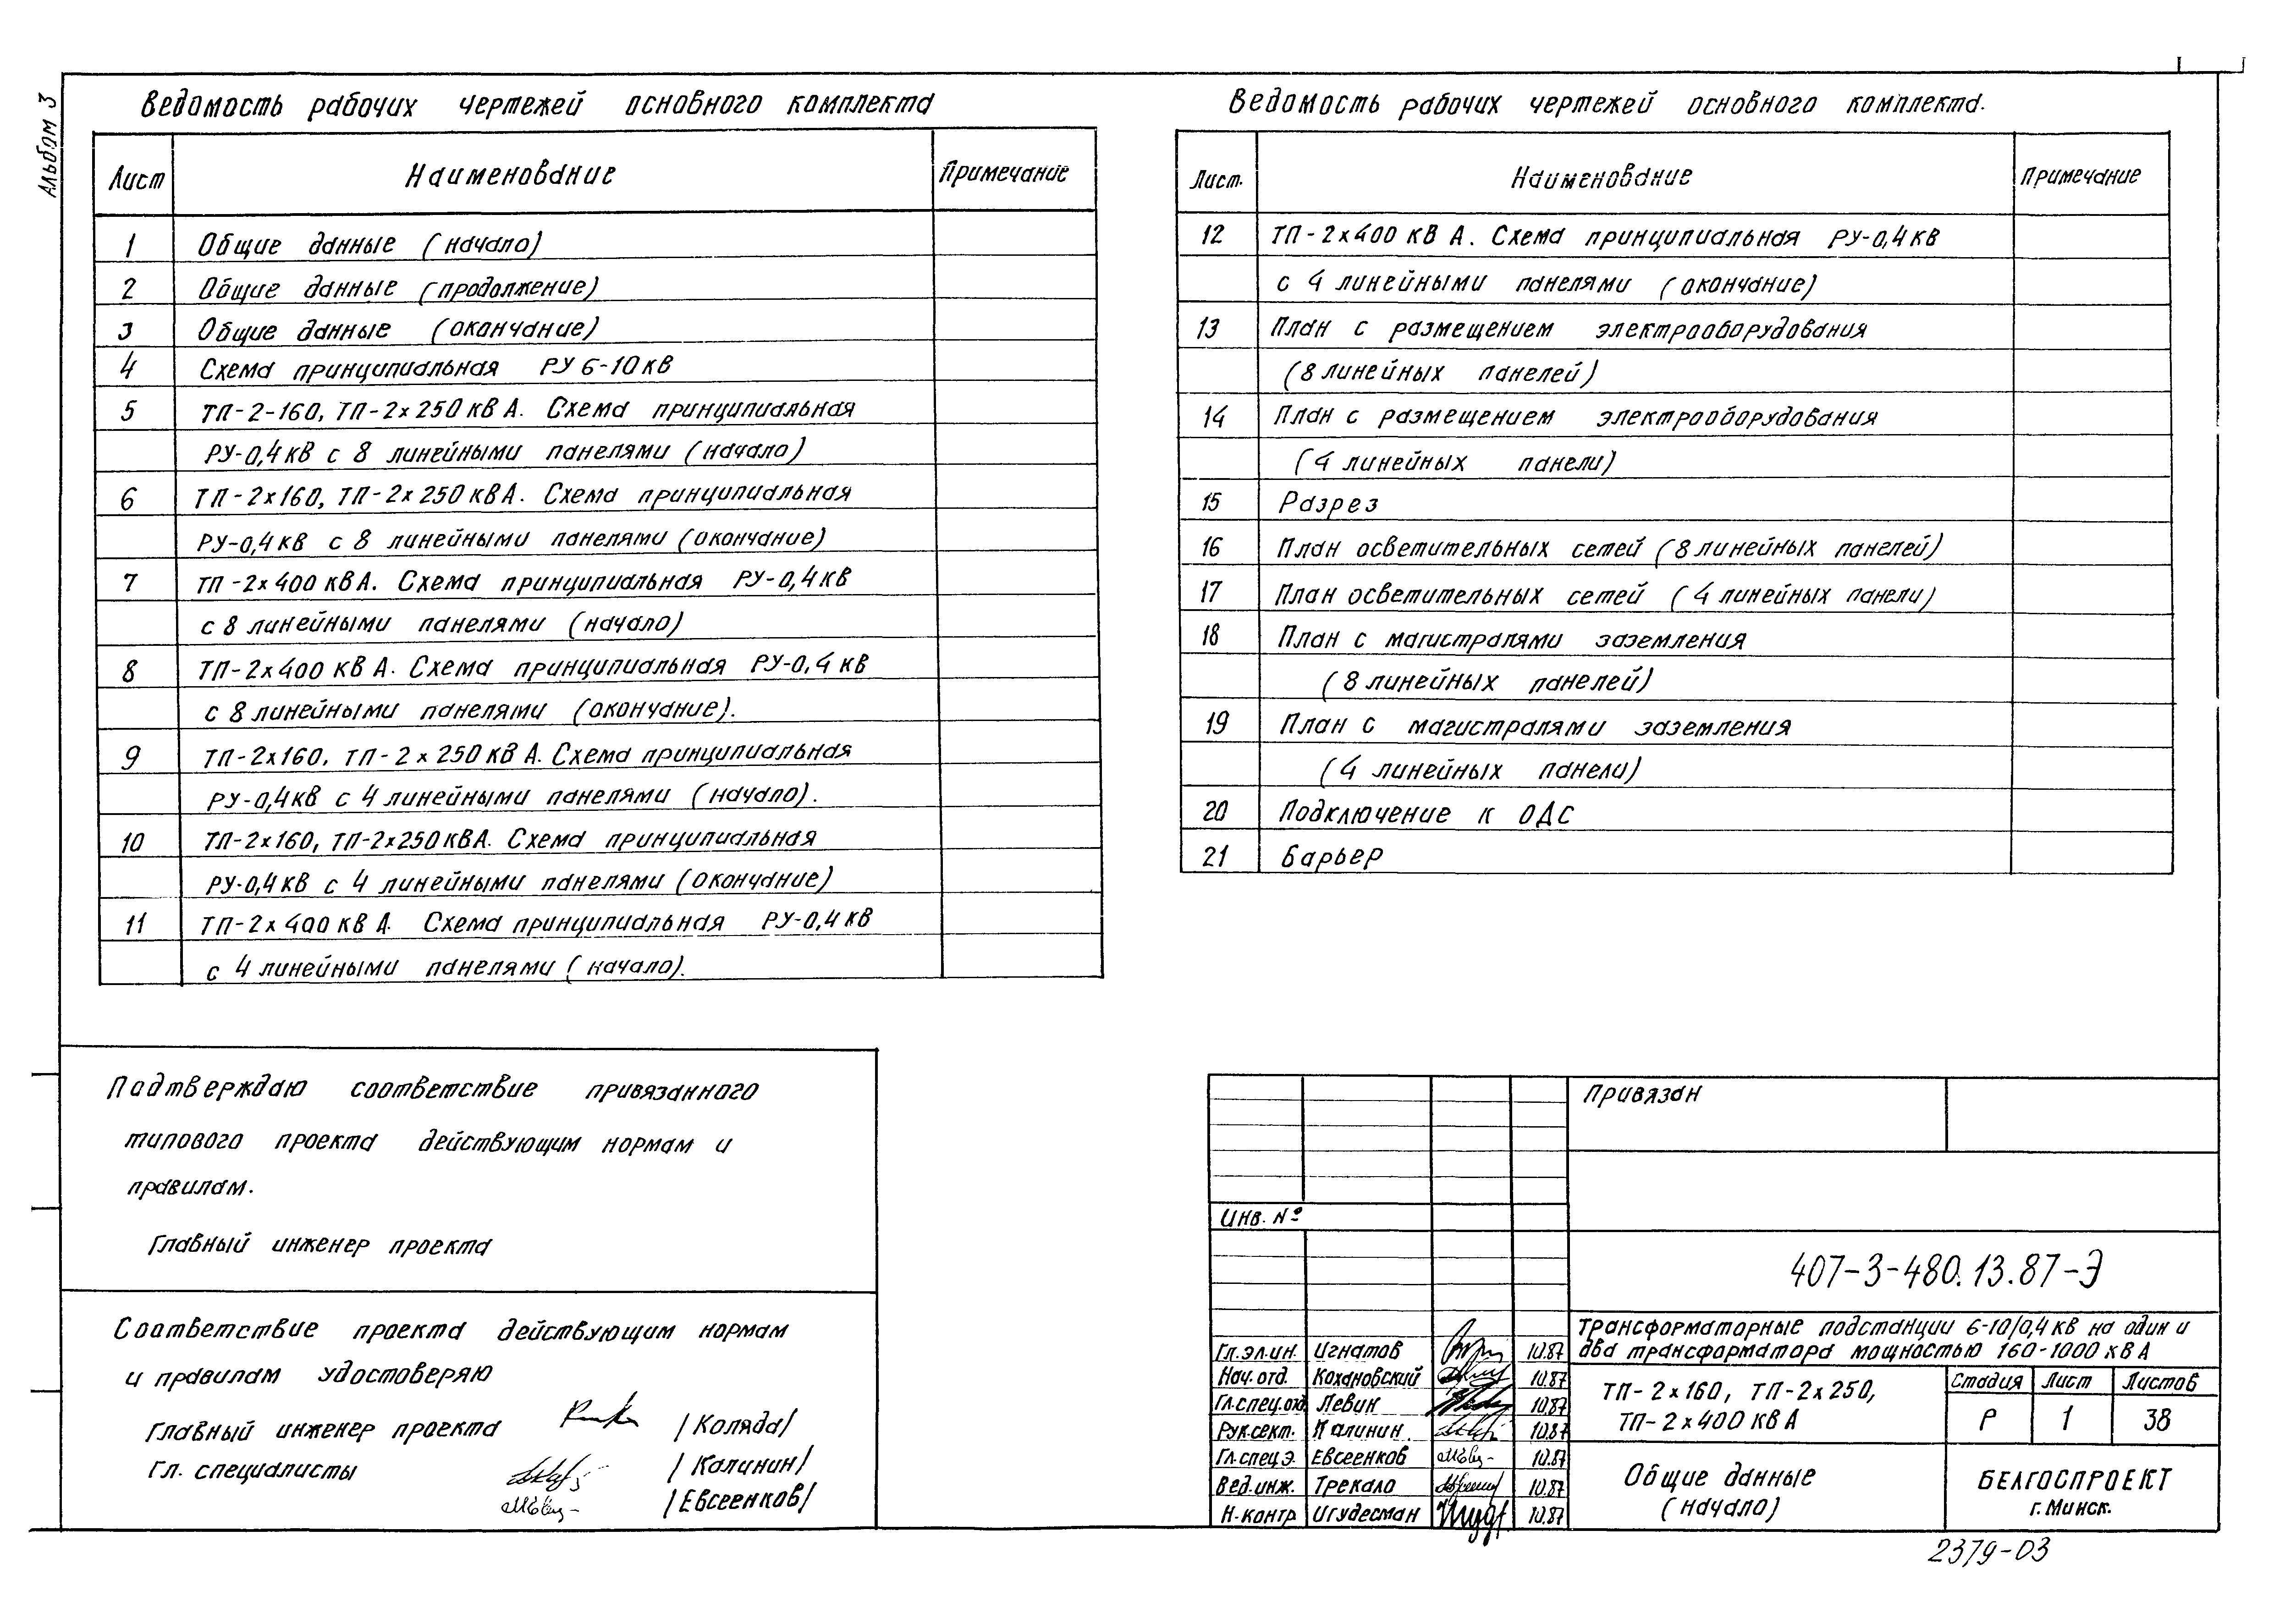 Альбом 3
Ведомость рабочих чертежей основного комплекта
Лист Наименование Примечание
1 Общие данные (начало)
2 Общие данные (продолжение)
3 Общие данные (окончание)
4 Схема принципиальная РУ 6-10кв
5 ТП-2-160, ТП-2х250 кВ А. Схема принципиальная
РУ-0,4кв с 8 линейными панелями (начало)
6 ТП-2х160, ТП-2х250 кВА. Схема принципиальная
РУ-0,4кв с 8 линейными панелями (окончание)
7 ТП-2х400 кВА. Схема принципиальная РУ-0,4кв
с 8 линейными панелями (начало)
8 ТП-2х400 кВ А. Схема принципиальная РУ-0,4 кв
с 8 линейными панелями (окончание).
9 ТП-2х160, ТП-2х250 кВ А. Схема принципиальная
РУ-0,4кв с 4 линейными панелями (начало).
10 ТП-2х160, ТП-2х250кВА. Схема принципиальная
РУ-0,4кв с 4 линейными панелями (окончание)
11 ТП-2х400 кВ А. Схема принципиальная РУ-0,4кв
с 4 линейными панелями (начало).
Ведомость рабочих чертежей основного комплекта.
Лист. Наименование Примечание
12 ТП-2х400 кВ А. Схема принципиальная РУ-0,4кв
с 4 линейными панелями (окончание)
13 План с размещением электрооборудования
(8 линейных панелей)
14 План с размещением электрооборудования
(4 линейных панели)
15 Разрез
16 План осветительных сетей (8 линейных панелей)
17 План осветительных сетей (4 линейных панели)
18 План с магистралями заземления
(8 линейных панелей)
19 План с магистралями заземления
(4 линейных панели)
20 Подключение к ОДС
21 Барьер
Подтверждаю соответствие привязанного
типового проекта действующим нормам и
правилам.
Главный инженер проекта
Соответствие проекта действующим нормам
и правилам удостоверяю
Главный инженер проекта /Коляда/
Гл. специалисты /Калинин/
/Евсеенков/
Привязан
Инв. №
407-3-480.13.87-Э
Трансформаторные подстанции 6-10/0,4 кв на один и
два трансформатора мощностью 160-1000 кВ А
Гл.эл.ин. Игнатов 10.87
Нач.отд. Кохановский 10.87
Гл.спец.отд. Левин 10.87
Рук.сект. Калинин. 10.87
Гл.спец.э. Евсеенков 10.87
Вед.инж. Трекало 10.87
Н.контр Игудесман 10.87
ТП-2х160, ТП-2х250,
ТП-2х400 кВ А
Стадия Лист Листов
Р 1 38
Общие данные
(начало)
БЕЛГОСПРОЕКТ
г. Минск.
2379-03